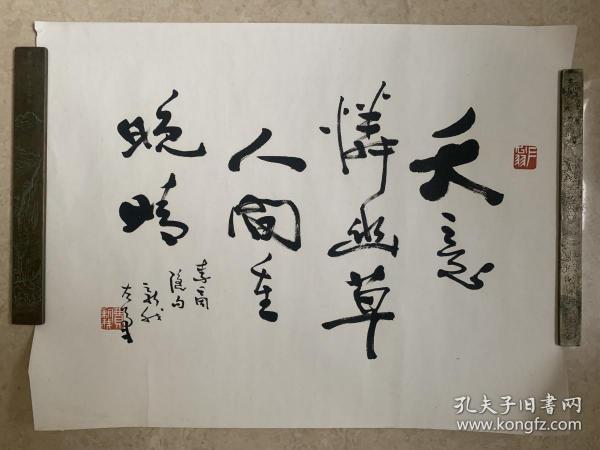 天意
憐幽草
人間重
晚晴
李商
隐句
孔夫子旧书网
www.kongfz.com